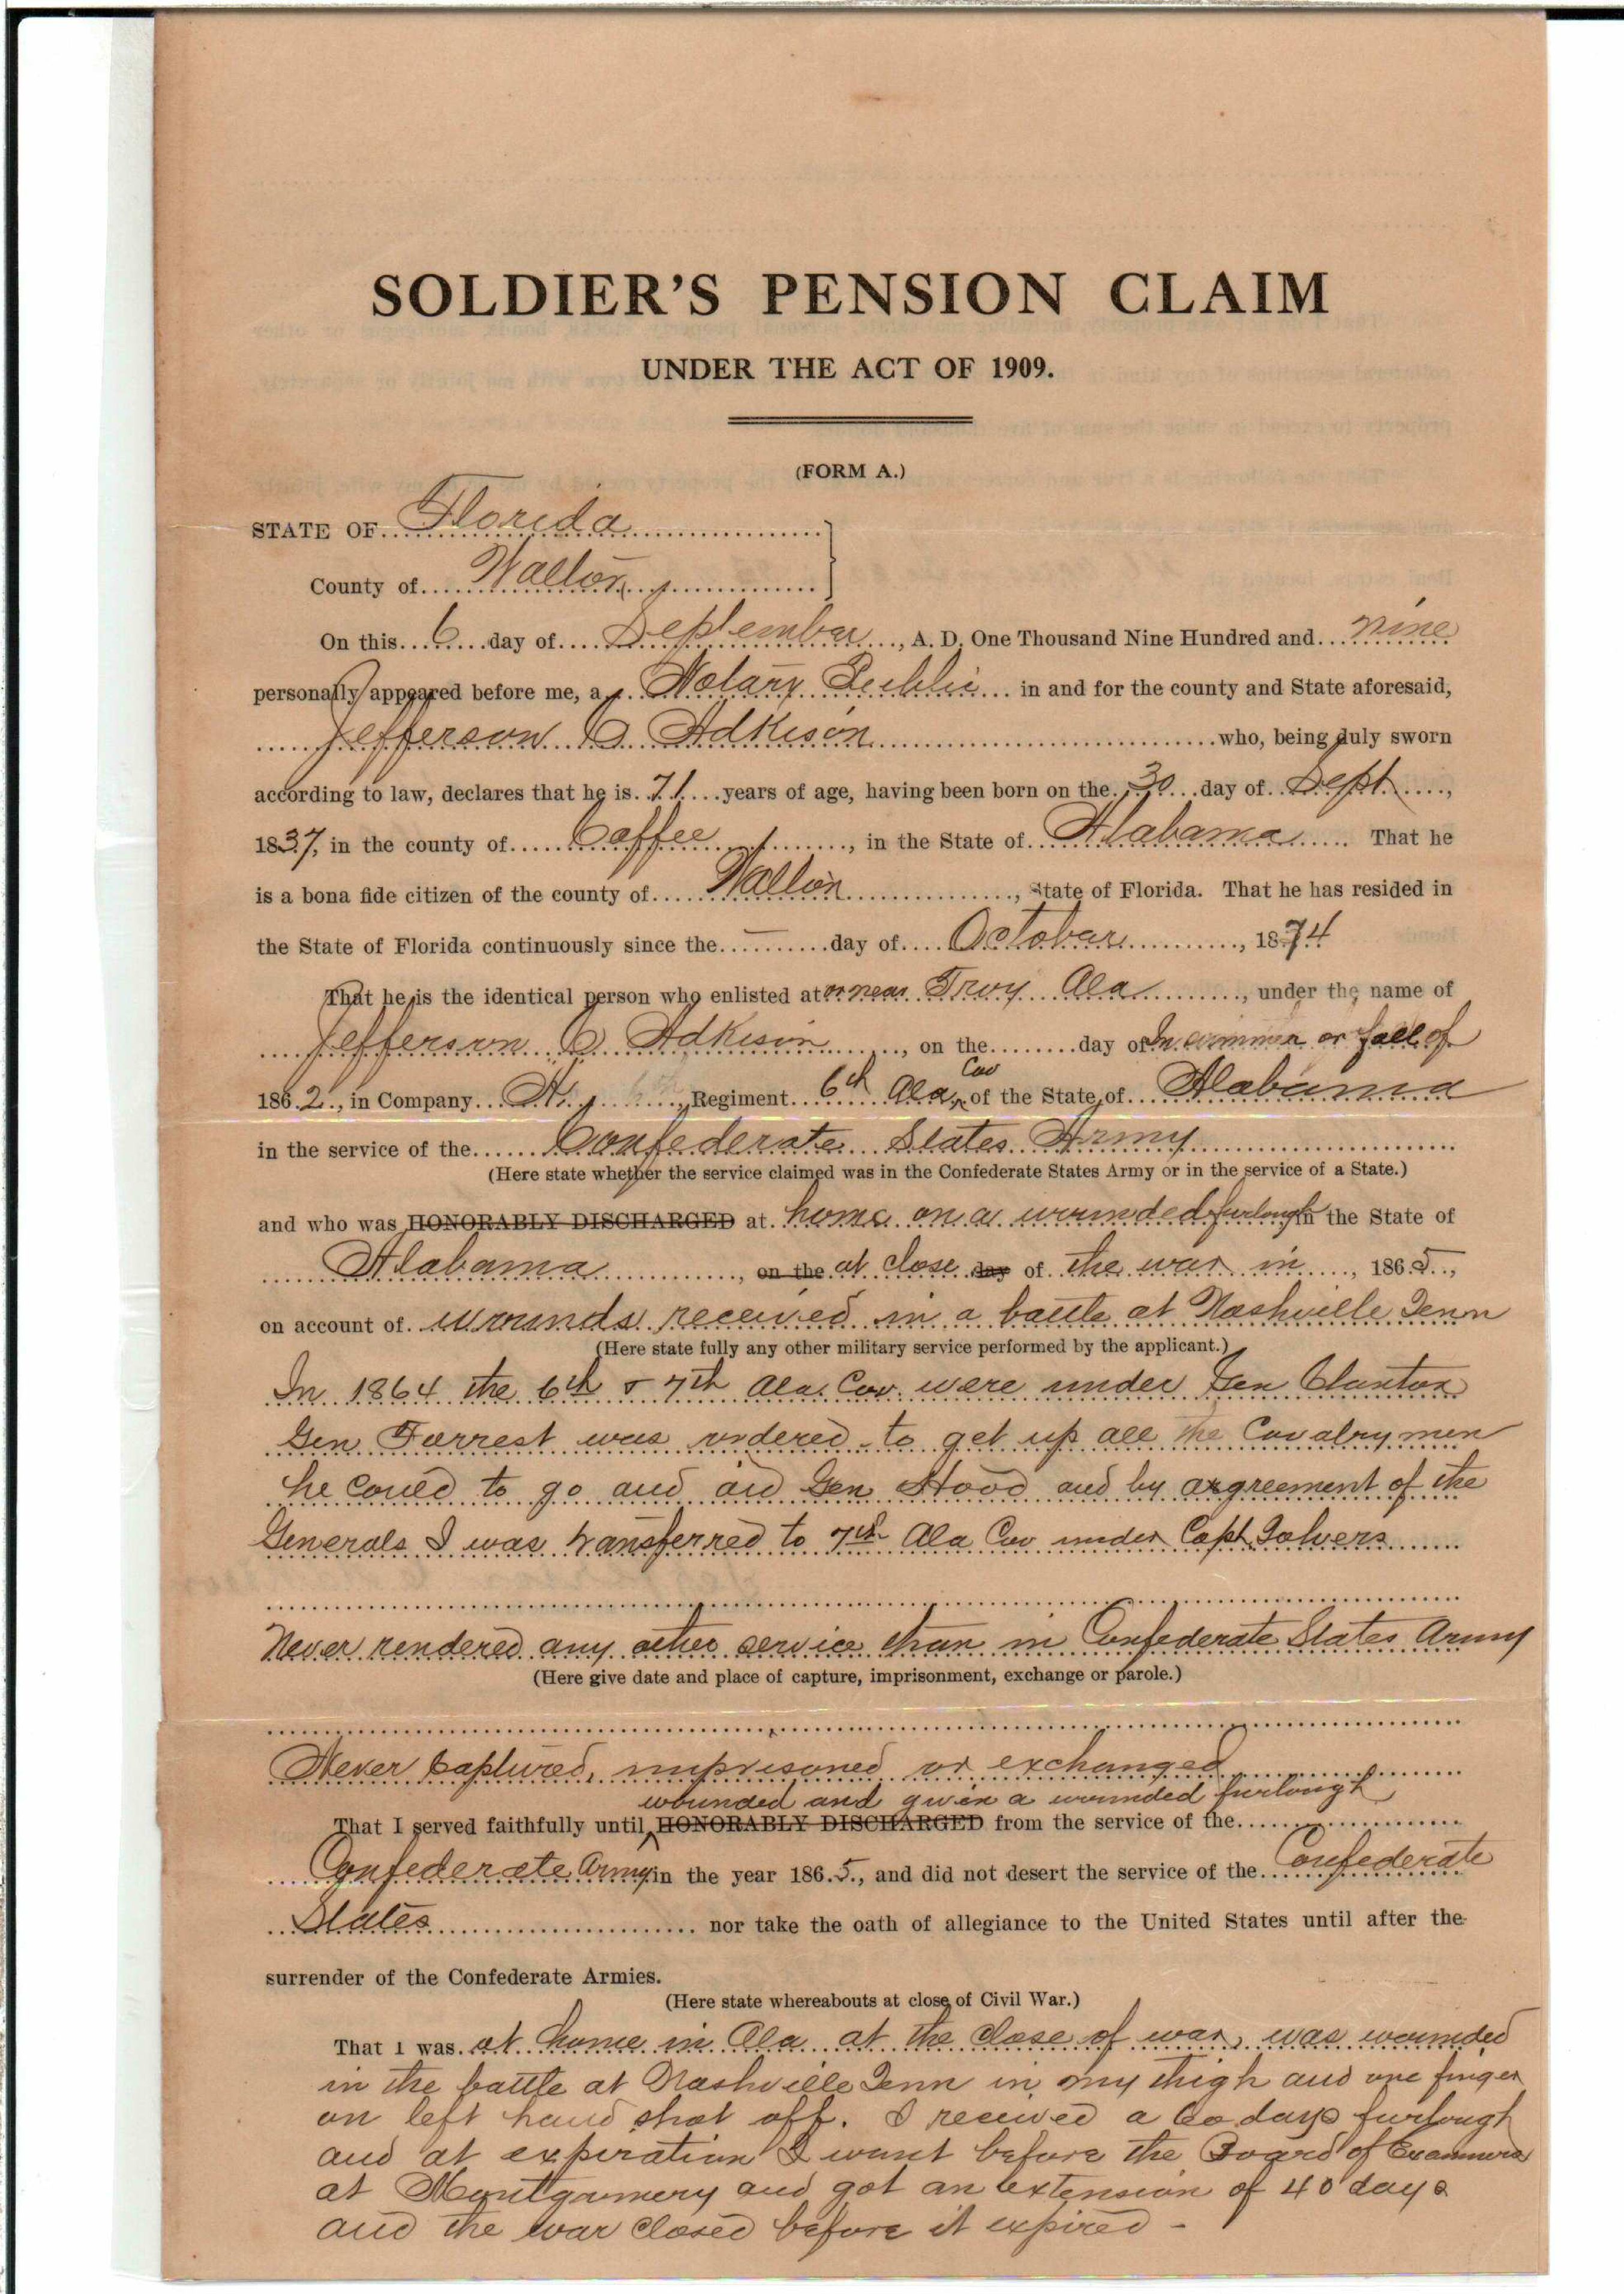 SOLDIER'S PENSION CLAIM
UNDER THE ACT OF 1909.
(FORM A.)
STATE OF Florida
County of Walton
On this 6 day of September, A. D. One Thousand Nine Hundred and nine
personally appeared before me, a Notary Public in and for the county and State aforesaid,
Jefferson Adkison who, being duly sworn
according to law, declares that he is 71 years of age, having been born on the 30 day of Sept,
1837, in the county of Coffee, in the State of Alabama That he
is a bona fide citizen of the county of Walton, State of Florida. That he has resided in
the State of Florida continuously since the — day of October, 1874
That he is the identical person who enlisted at or near Troy Ala, under the name of
Jefferson Adkison, on the day of In summer or fall of
1862, in Company A, Regiment 6th Ala Cav of the State of Alabama
in the service of the Confederate States Army
(Here state whether the service claimed was in the Confederate States Army or in the service of a State.)
and who was HONORABLY DISCHARGED at home on a wounded furlough in the State of
Alabama, on the at close day of the war in, 1865,
on account of wounds received in a battle at Nashville Tenn
(Here state fully any other military service performed by the applicant.)
In 1864 the 6th & 7th Ala. Cav. were under Gen Clanton
Gen Forrest was ordered to get up all the Cavalrymen
he could to go and aid Gen Hood and by agreement of the
Generals I was transferred to 7th Ala Cav under Capt
Never rendered any other service than in Confederate States Army
(Here give date and place of capture, imprisonment, exchange or parole.)
Never captured, imprisoned or exchanged
wounded and given a wounded furlough
That I served faithfully until HONORABLY DISCHARGED from the service of the
Confederate Army in the year 1865, and did not desert the service of the Confederate
States nor take the oath of allegiance to the United States until after the
surrender of the Confederate Armies.
(Here state whereabouts at close of Civil War.)
That I was at home in Ala at the close of war, was wounded
in the battle at Nashville Tenn in my thigh and one finger
on left hand shot off. I received a 60 days furlough
and at experation I went before the Board of Examiners
at Montgomery and got an extension of 40 days
and the war closed before it expired -